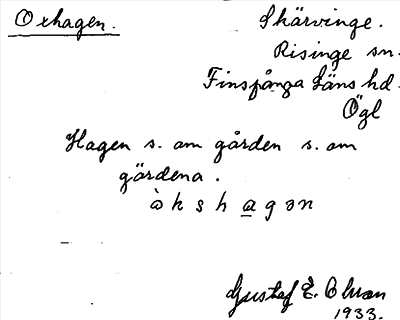 Oxhagen.
Skärvinge.
Risinge sn.
Finspånga Läns hd.
Ögl
Hagen s. om gården s. om
gärdena.
òkshagən
Gustaf E. Olsson
1933.